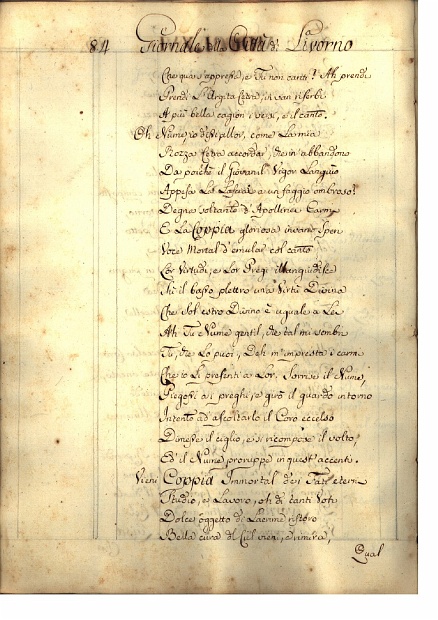 84 Giornale della Città di Livorno
Che quasi appresso, e Tu non canti? Ah prendi
Prendi L'Argita Cetra, in van riserbi
A più bella cagion i versi, e il canto.
Oh Nume, io dissi allor, come La mia
Rozza Cetra accordar, che in abbandono
Da poiché il Giovanil Vigor Languio
Appesa La Lasciai a un faggio ombroso?
Degno soltanto d'Apollinei Carmi
E La Coppia gloriosa invano speri
Voce Mortal d'emular col canto
Lor Virtudi, e Lor Pregi
Sù il basso plettro una Virtù Divina
Che sol estro Divino è uguale a Lei
Ah Tu Nume gentil, che tal mi sembri
Tu, che Lo puoi, Deh m'impresta i carmi
Che io Li presenti a Lor. Sorrise il Nume,
Piegossi a i preghi, e girò il guardo intorno
Intento ad ascoltarlo il Coro eccelso
Dimesse il ciglio, e si ricompose il volto,
Ed il Nume proruppe in quest'accenti.
Vieni Coppia Immortal de i Fati eterni
Studio, e Lavoro, oh di tanti Voti
Dolce oggetto di Lacrime ristoro
Bella cura di Ciel vieni, e rimira,
Qual